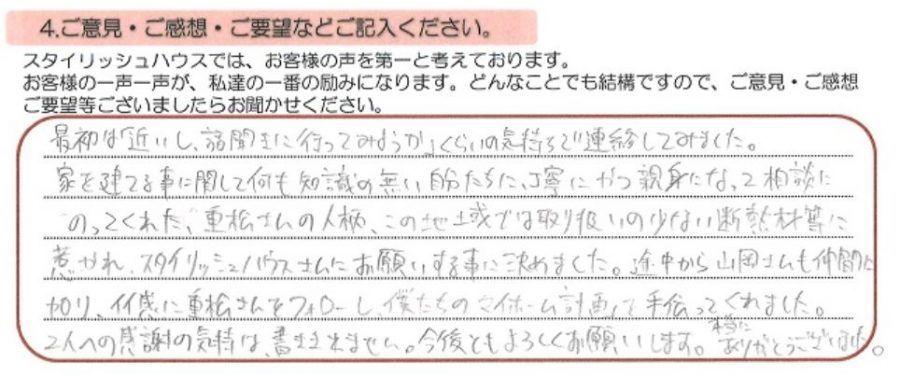 4.ご意見・ご感想・ご要望などご記入ください。
スタイリッシュハウスでは、お客様の声を第一と考えております。
お客様の一声一声が、私達の一番の励みになります。どんなことでも結構ですので、ご意見・ご感想
ご要望等ございましたらお聞かせください。
最初は「近いし、話聞きに行ってみようか」くらいの気持ちで連絡してみました。
家を建てる事に関して何も知識の無い自分たちに、丁寧にかつ親身になって相談に
のってくれた、重松さんの人柄、この地域では取り扱いの少ない断熱材等に
惹かれ、スタイリッシュハウスさんにお願いする事に決めました。途中から山岡さんも仲間に
加り、重松さんをフォローし、僕たちのマイホーム計画を手伝ってくれました。
2人への感謝の気持は、書ききれません。今後ともよろしくお願いします。本当に
ありがとうございました。